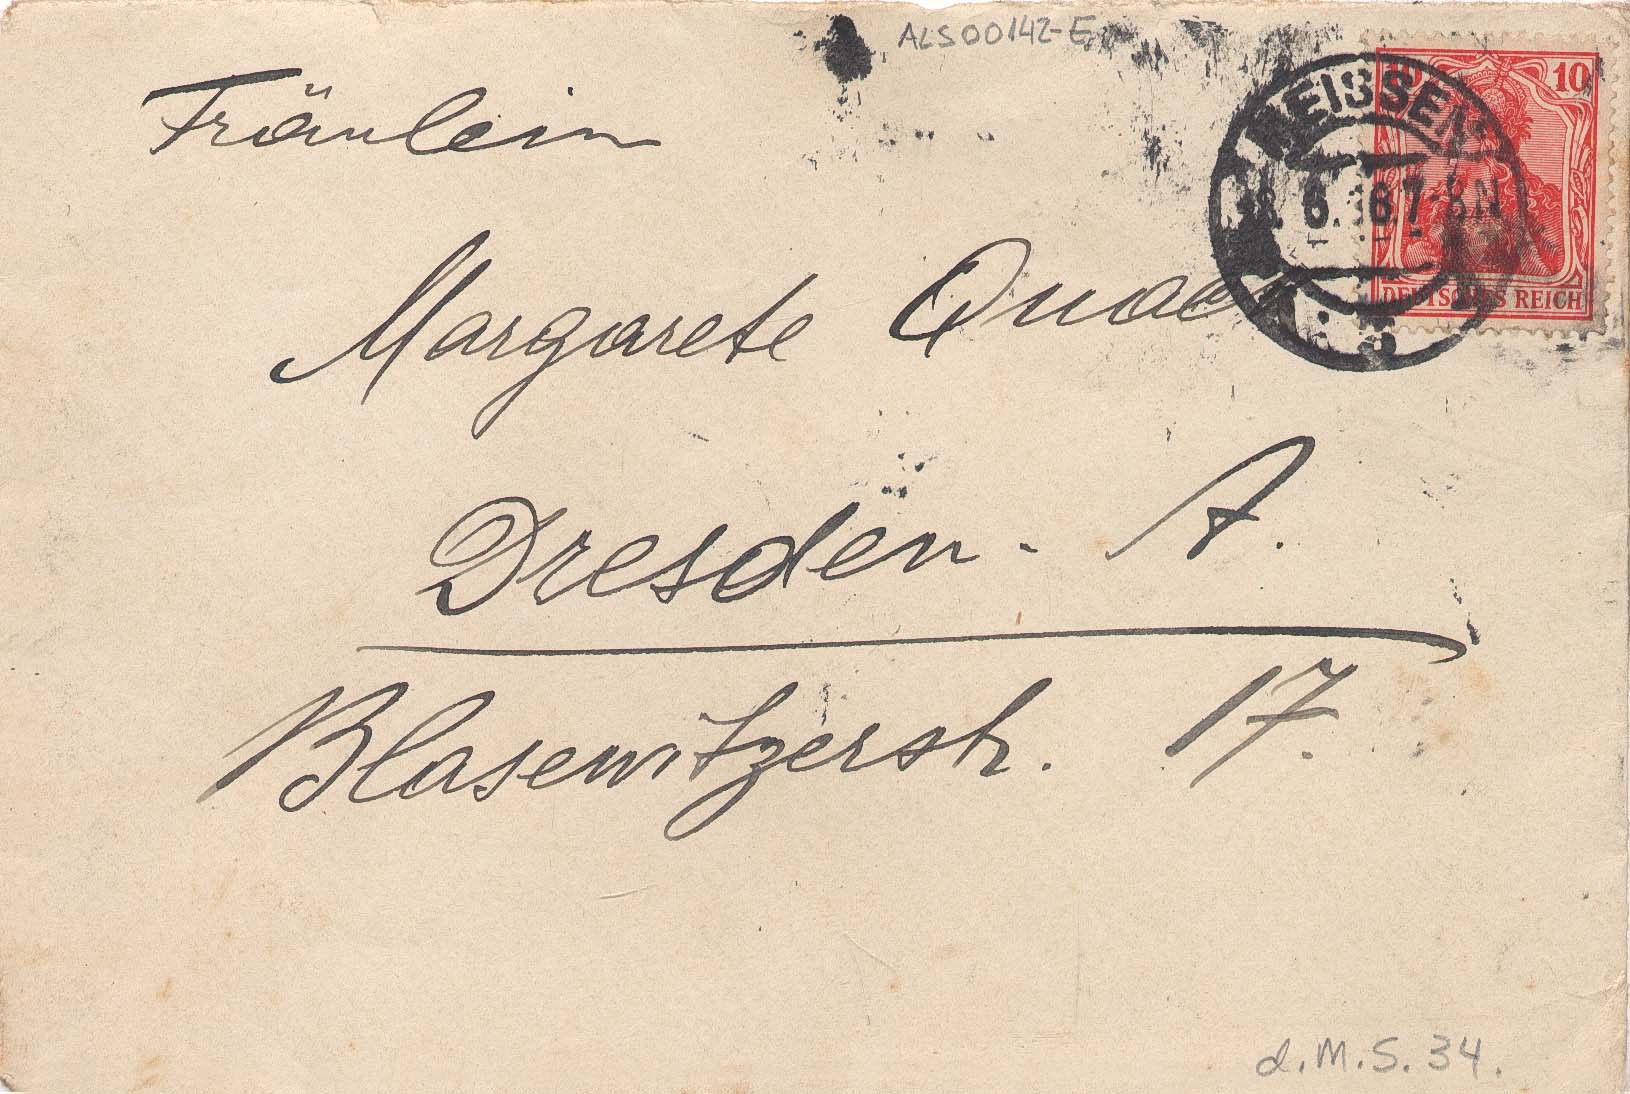 ALS00142-E
Fräulein
Margarete Quaas
MEISSEN
6.16.7-8N
10 10
DEUTSCHES REICH
Dresden - A.
Blasewitzerstr. 17.
d.M.S. 34.